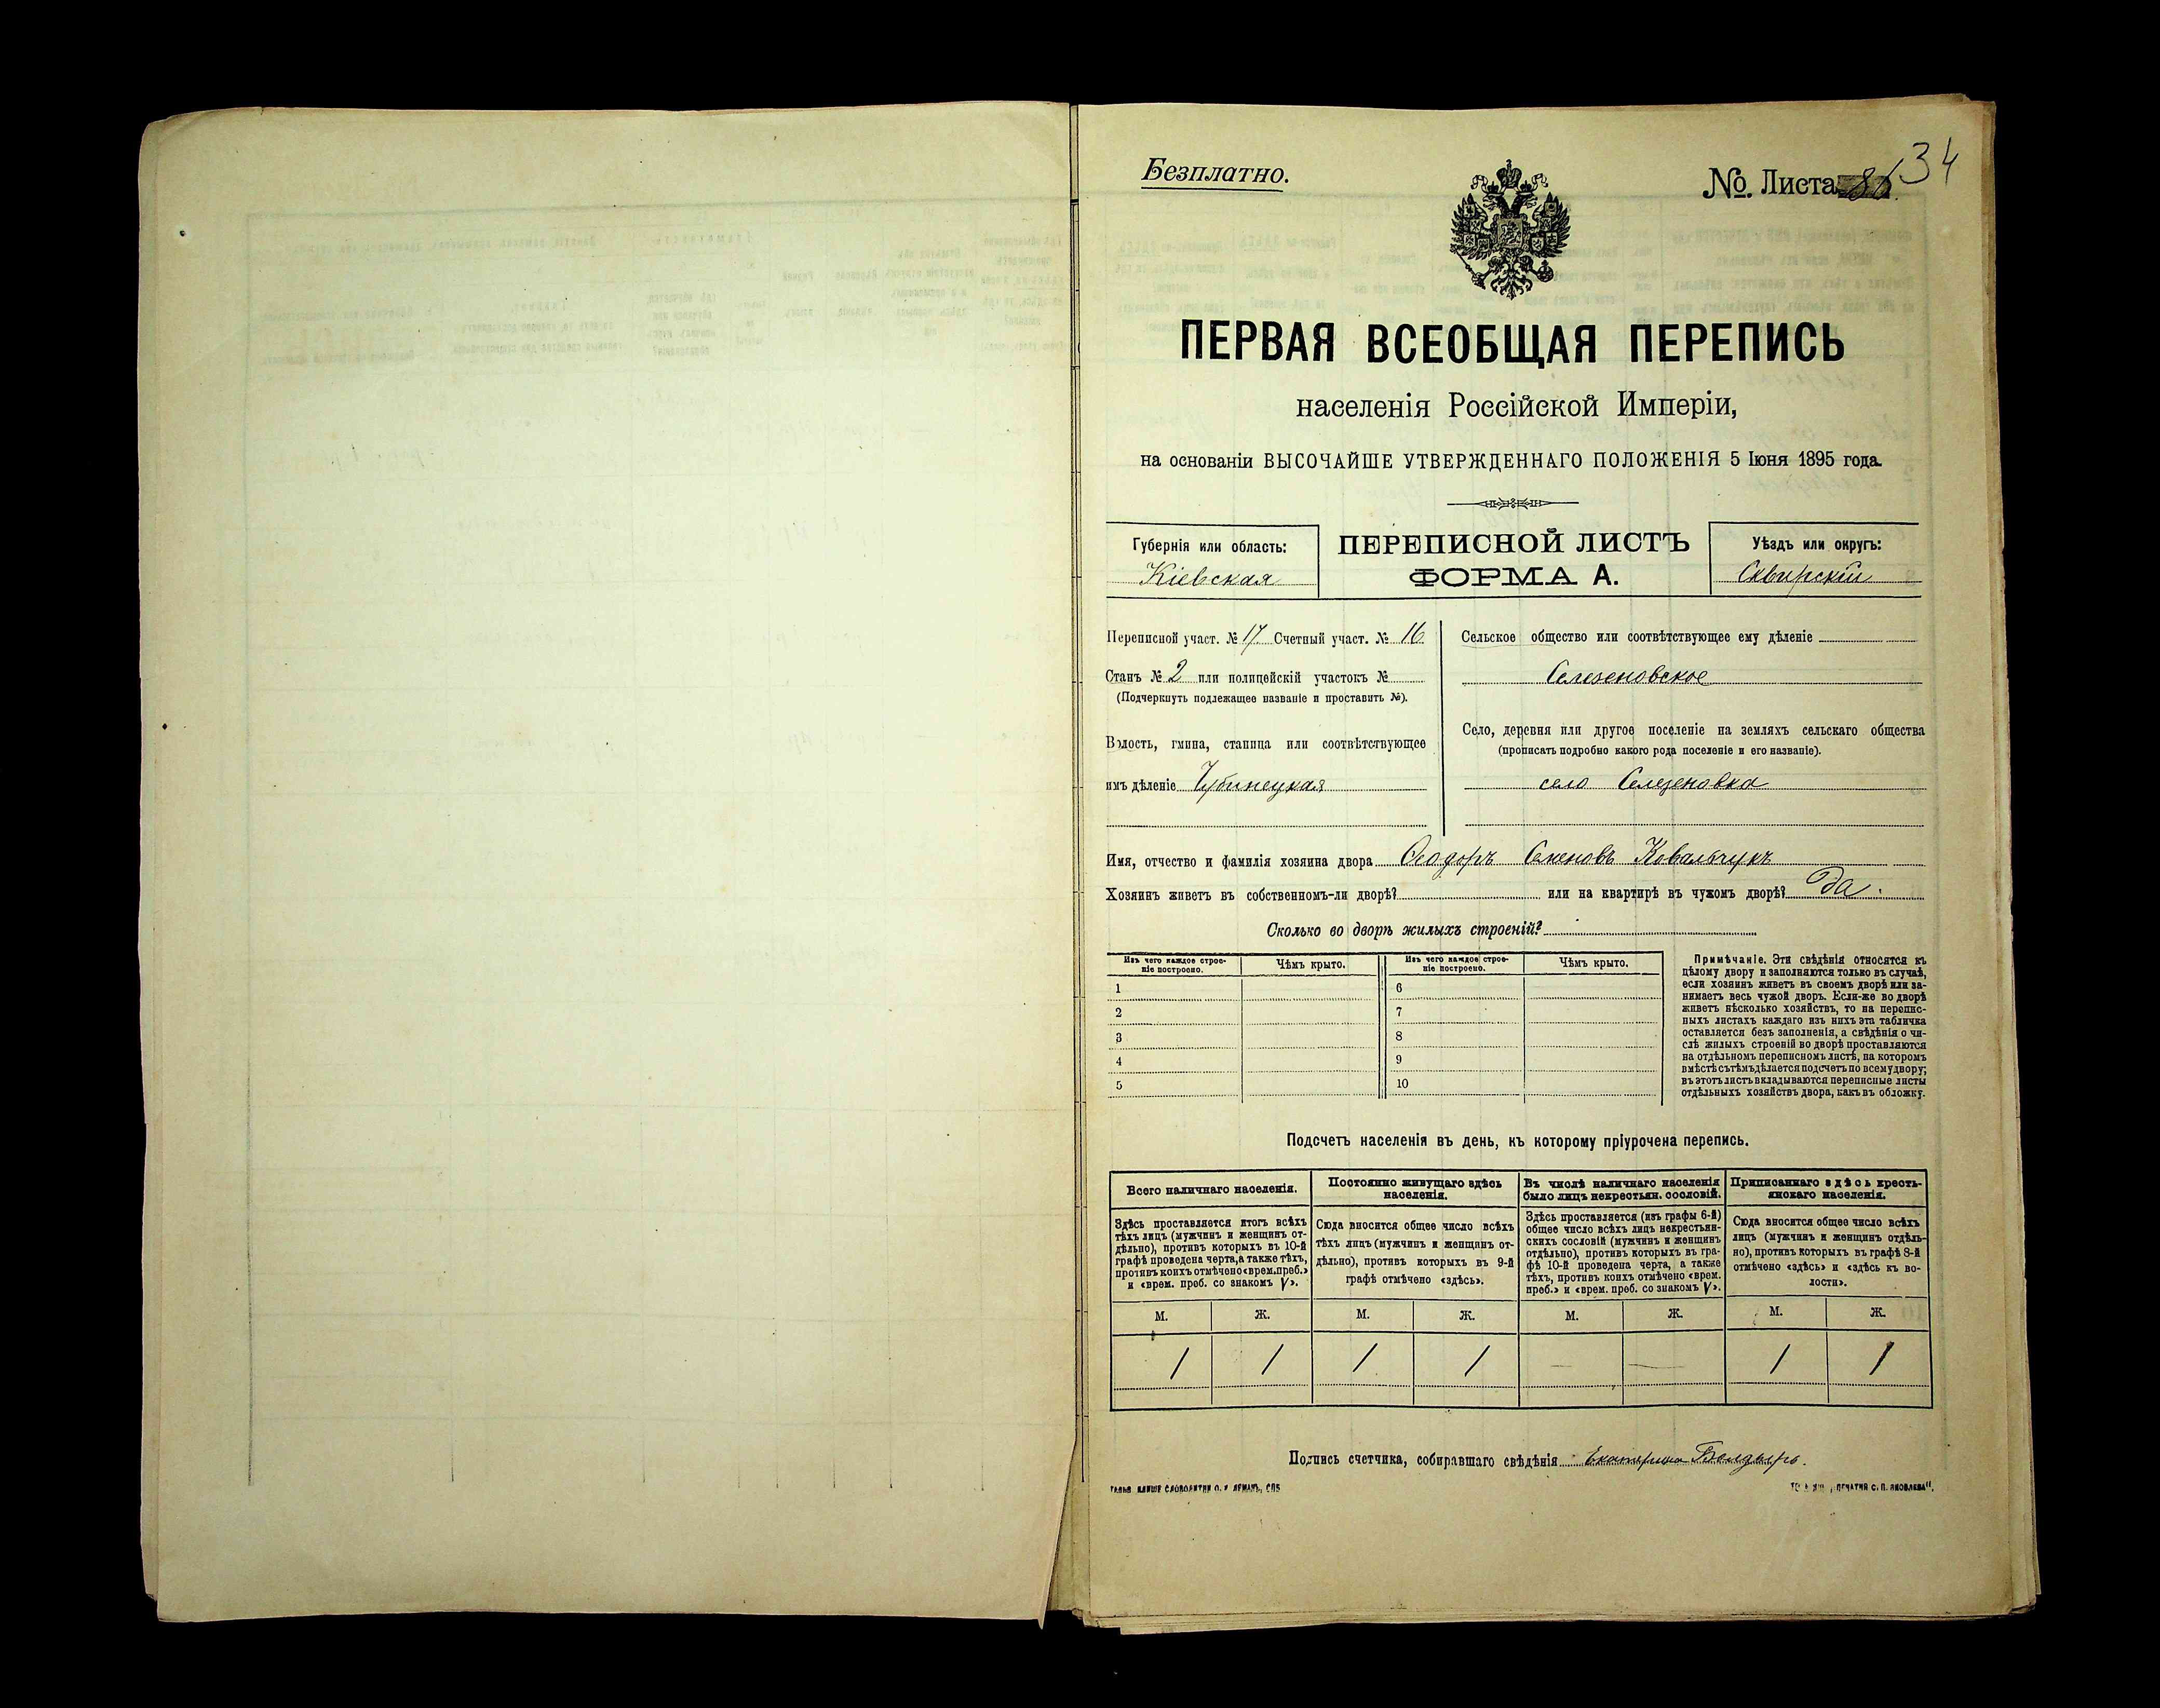 Безплатно.
№. Листа 34
ПЕРВАЯ ВСЕОБЩАЯ ПЕРЕПИСЬ
населенія Россійской Имперіи,
на основаніи ВЫСОЧАЙШЕ УТВЕРЖДЕННАГО ПОЛОЖЕНІЯ 5 Іюня 1895 года.
Губернія или область:
Кіевская
ПЕРЕПИСНОЙ ЛИСТЪ
ФОРМА А.
Уѣздъ или округъ:
Сквирскій
Переписной участ. № 17 Счетный участ. № 16
Станъ № 2 или полицейскій участокъ №
(Подчеркнуть подлежащее названіе и проставить №).
Волость, гмина, станица или соотвѣтствующее
имъ дѣленіе Чубинецкая
Сельское общество или соотвѣтствующее ему дѣленіе
Селезеновское
Село, деревня или другое поселеніе на земляхъ сельскаго общества
(прописать подробно какого рода поселеніе и его названіе).
село Селезеновка
Имя, отчество и фамилія хозяина двора Ѳеодоръ Семеновъ Ковальчукъ
Хозяинъ живетъ въ собственномъ-ли дворѣ? или на квартирѣ въ чужомъ дворѣ? Да.
Сколько во дворѣ жилыхъ строеній?
Изъ чего каждое строе-
ніе построено.
Чѣмъ крыто.
Изъ чего каждое строе-
ніе построено.
Чѣмъ крыто.
1 6
2 7
3 8
4 9
5 10
Примѣчаніе. Эти свѣдѣнія относятся къ
цѣлому двору и заполняются только въ случаѣ,
если хозяинъ живетъ въ своемъ дворѣ или за-
нимаетъ весь чужой дворъ. Если-же во дворѣ
живетъ нѣсколько хозяйствъ, то на перепис-
ныхъ листахъ каждаго изъ нихъ эта табличка
оставляется безъ заполненія, а свѣдѣнія о чи-
слѣ жилыхъ строеній во дворѣ проставляются
на отдѣльномъ переписномъ листѣ, на которомъ
вмѣстѣ съ тѣмъ дѣлается подсчетъ по всему двору;
въ этотъ листъ вкладываются переписные листы
отдѣльныхъ хозяйствъ двора, какъ въ обложку.
Подсчетъ населенія въ день, къ которому пріурочена перепись.
Всего наличнаго населенія.
Постоянно живущаго здѣсь
населенія.
Въ числѣ наличнаго населенія
было лицъ некрестьян. сословій.
Приписаннаго здѣсь кресть-
янскаго населенія.
Здѣсь проставляется итогъ всѣхъ
тѣхъ лицъ (мужчинъ и женщинъ от-
дѣльно), противъ которыхъ въ 10-й
графѣ проведена черта, а также тѣхъ,
противъ коихъ отмѣчено «врем. преб.»
и «врем. преб. со знакомъ V».
Сюда вносится общее число всѣхъ
тѣхъ лицъ (мужчинъ и женщинъ от-
дѣльно), противъ которыхъ въ 9-й
графѣ отмѣчено «здѣсь».
Здѣсь проставляется (изъ графы 6-й)
общее число всѣхъ лицъ некрестьян-
скихъ сословій (мужчинъ и женщинъ
отдѣльно), противъ которыхъ въ гра-
фѣ 10-й проведена черта, а также
тѣхъ, противъ коихъ отмѣчено «врем.
преб.» и «врем. преб. со знакомъ V».
Сюда вносится общее число всѣхъ
лицъ (мужчинъ и женщинъ отдѣль-
но), противъ которыхъ въ графѣ 8-й
отмѣчено «здѣсь» и «здѣсь къ во-
лости».
М. Ж. М. Ж. М. Ж. М. Ж.
1 1 1 1 — — 1 1
Подпись счетчика, собиравшаго свѣдѣнія Екатерина